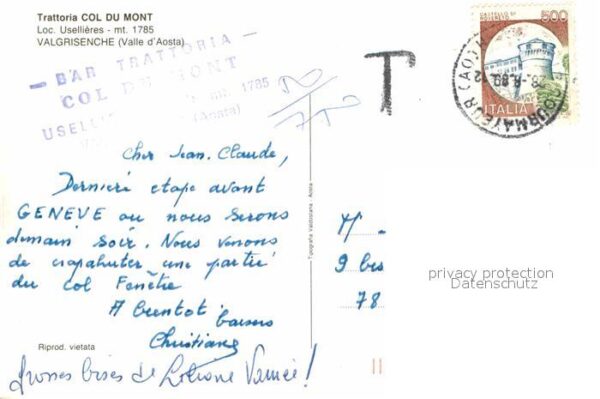 Trattoria COL DU MONT
Loc. Usellières - mt. 1785
VALGRISENCHE (Valle d'Aosta)
- BAR TRATTORIA -
COL DU MONT
mt. 1785
USELLI (Aosta)
T
CASTELLO DI ROVERETO
500
ITALIA
COURMAYEUR (AO)
Cher Jean-Claude,
Dernière etape avant
GENEVE ou nous serons
demain soir. Nous venons
de crapahuter une partie
du col Fenêtre
A bientot
baisers
Christiane
Grosses bises de
Riprod. vietata
Tipografia Valdostana - Aosta
9 bis
78
privacy protection
Datenschutz